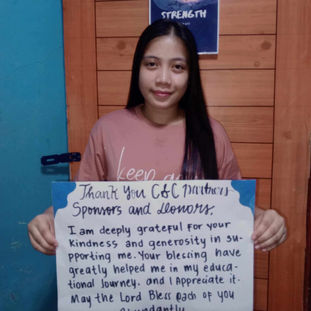 STRENGTH
keep
Thank You C&C Partners
Sponsors and donors,
I am deeply grateful for your
Kindness and generosity in su-
pporting me. Your blessing have
greatly helped me in my educa-
tional Journey. and I Appreciate it.
May the Lord Bless each of you
Abundantly